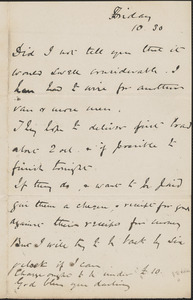 Friday
10.30
Did I not tell you that it
would swell considerably. I
have had to wire for another
van & more men.
They hope to deliver first load
about 2 oc. & if possible to
finish tonight
If they do, & want to be paid
give them a cheque, & receipt for
against their receipt for money
But I will try to be back by six
o'clock if I can.
Cheque ought to be under £10.
God bless you darling